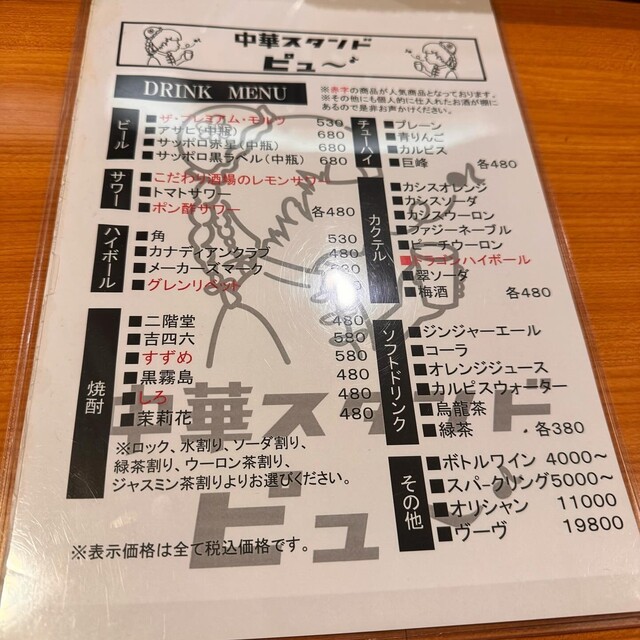 中華スタンド
ピュ〜♪
DRINK MENU
※赤字の商品が人気商品となっております。
※その他にも個人的に仕入れたお酒が棚に
あるので是非お声かけください。
ビール
■ザ・プレミアム・モルツ 530
■アサヒ(中瓶) 680
■サッポロ赤星(中瓶) 680
■サッポロ黒ラベル(中瓶) 680
サワー
■こだわり酒場のレモンサワー
■トマトサワー
■ポン酢サワー 各480
ハイボール
■角 530
■カナディアンクラブ 480
■メーカーズマーク
■グレンリベット
焼酎
■二階堂 480
■吉四六 580
■すずめ 580
■黒霧島 480
■しろ 480
■茉莉花 480
※ロック、水割り、ソーダ割り、
緑茶割り、ウーロン茶割り、
ジャスミン茶割りよりお選びください。
※表示価格は全て税込価格です。
チューハイ
■プレーン
■青りんご
■カルピス
■巨峰 各480
カクテル
■カシスオレンジ
■カシスソーダ
■カシスウーロン
■ファジーネーブル
■ピーチウーロン
■ドラゴンハイボール
■翠ソーダ
■梅酒 各480
ソフトドリンク
■ジンジャーエール
■コーラ
■オレンジジュース
■カルピスウォーター
■烏龍茶
■緑茶 各380
その他
■ボトルワイン 4000〜
■スパークリング5000〜
■オリシャン 11000
■ヴーヴ 19800
中華スタンド
ピュ〜♪